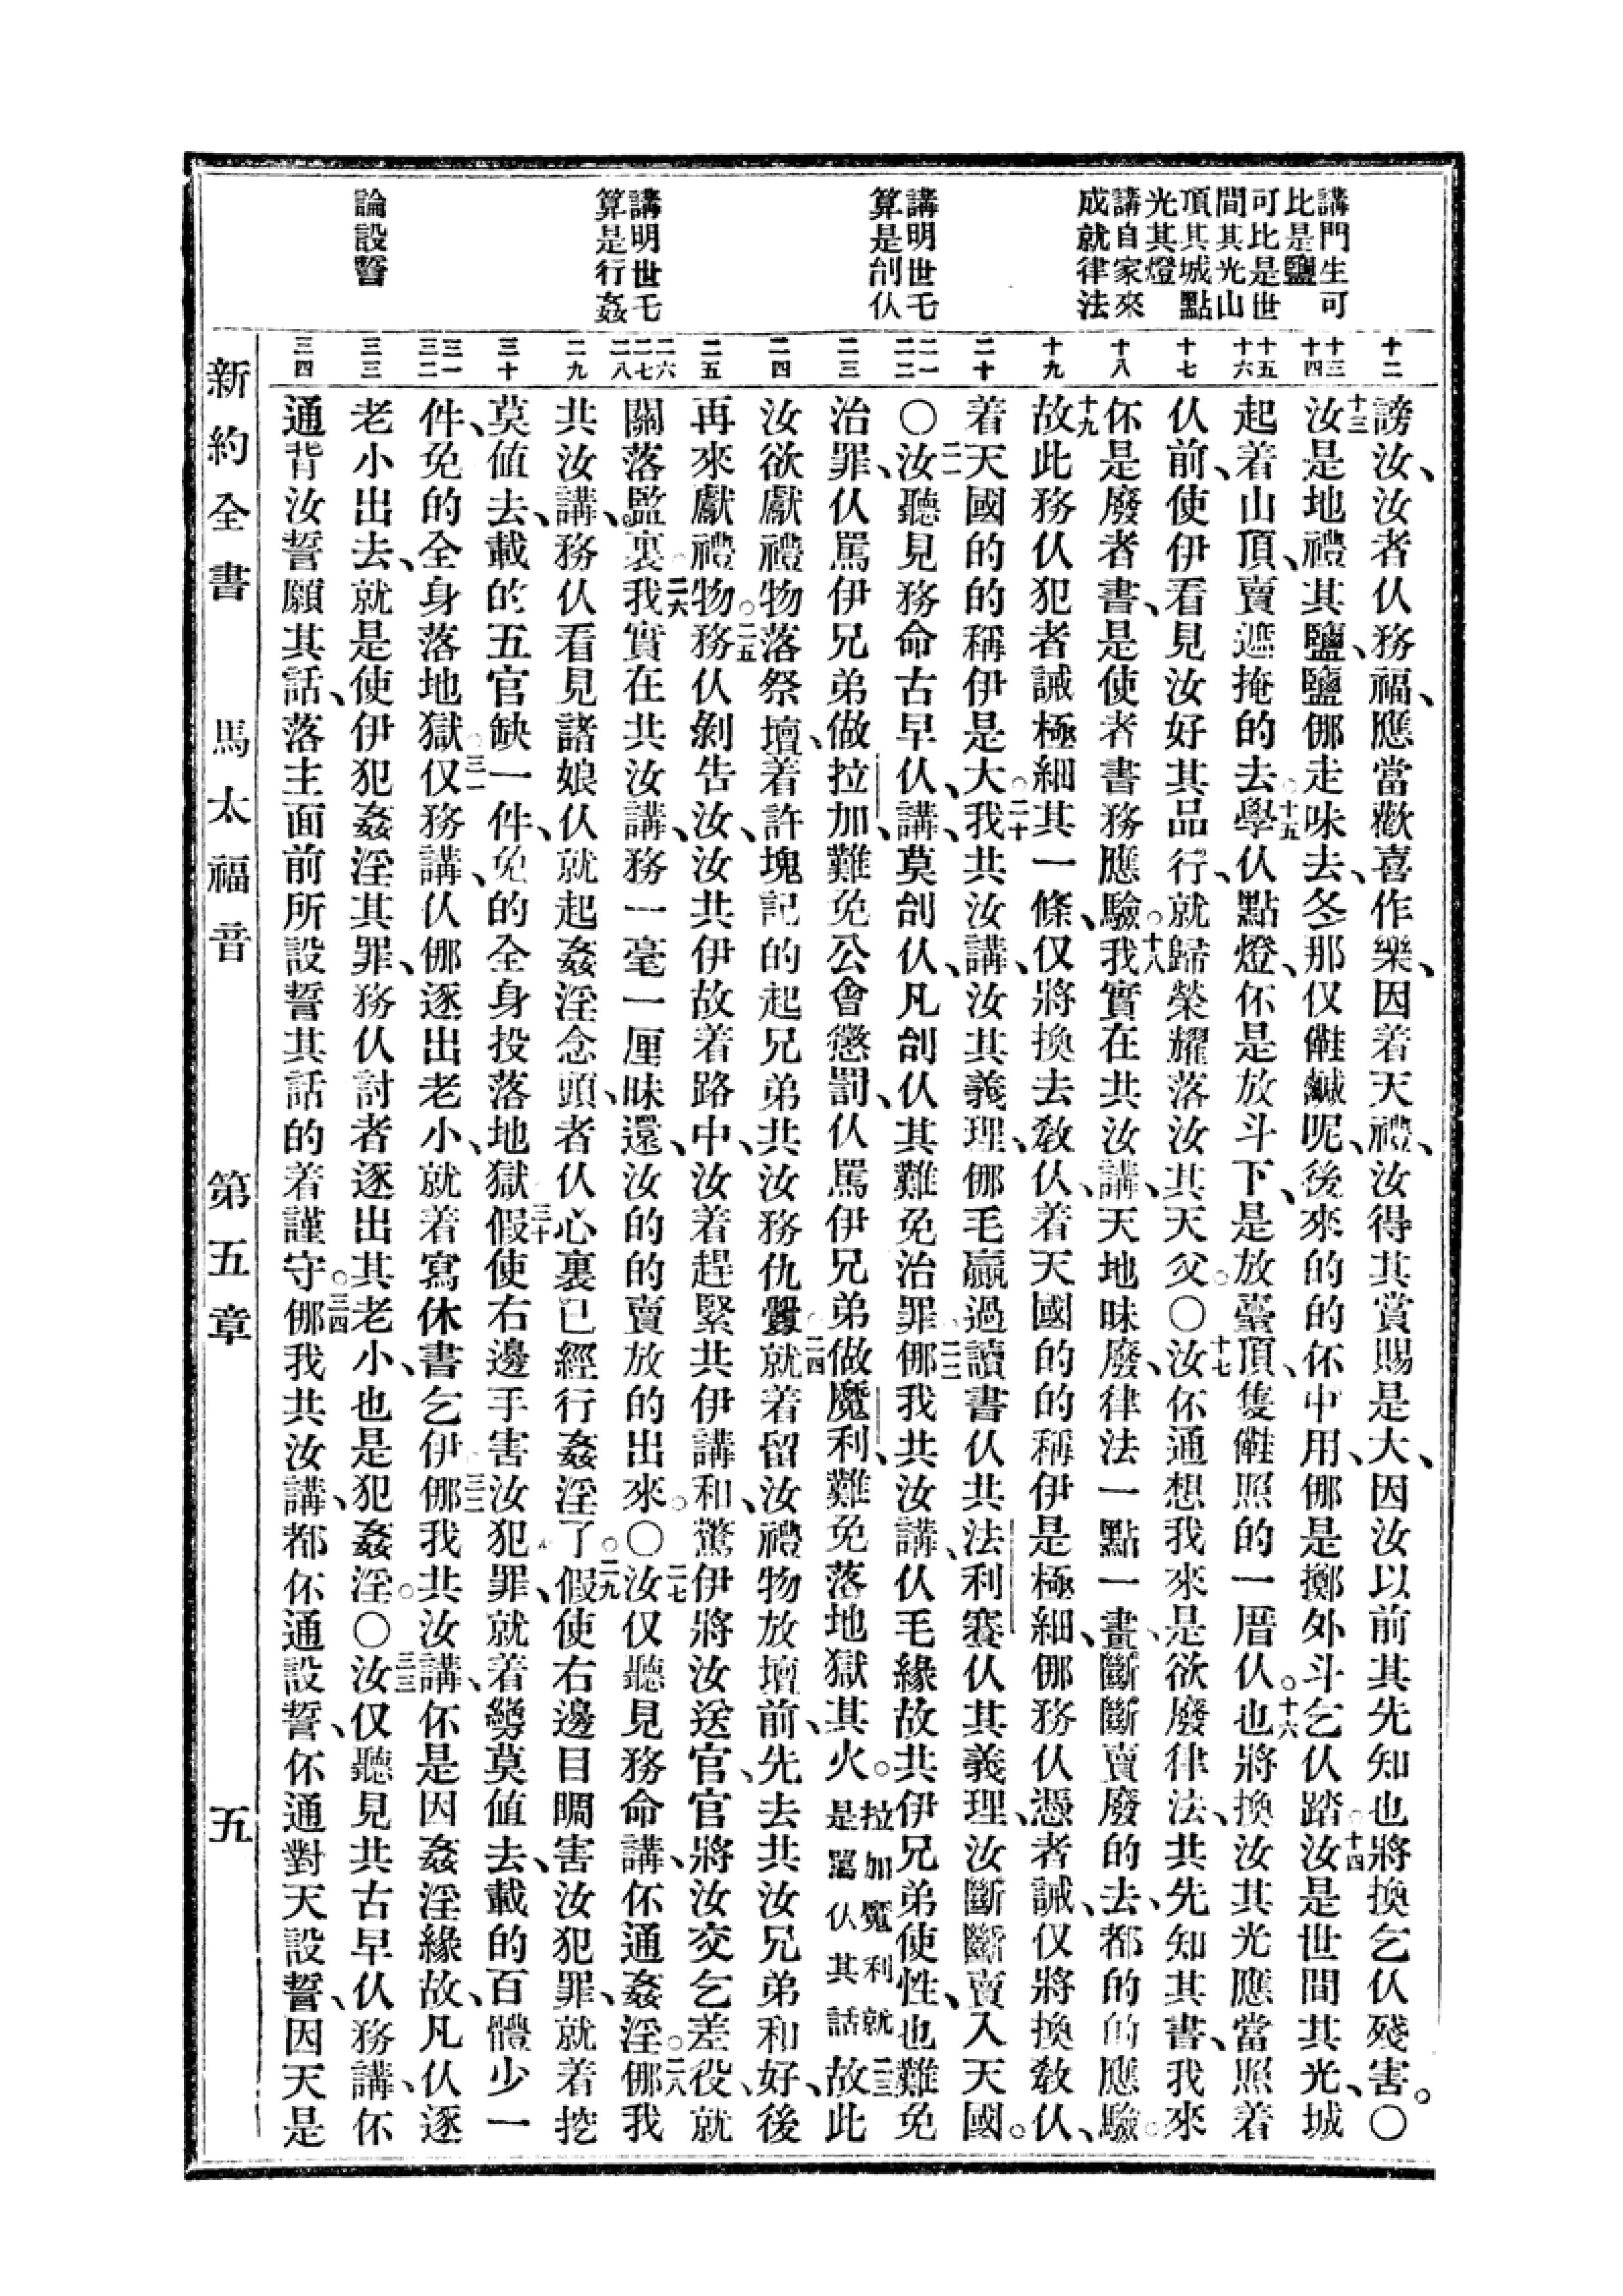 講門生可
比是鹽
可比是世
間其光山
頂其城點
光其燈
講自家來
成就律法
講明世乇
算是刣仈
講明世乇
算是行姦
論設誓
十二
十三
十四
十五
十六
十七
十八
十九
二十
二一
二二
二三
二四
二五
二六
二七
二八
二九
三十
三一
三二
三三
三四
謗汝、汝者仈務福、應當歡喜作樂、因着天禮、汝得其賞賜是大、因汝以前其先知也將換乞仈殘害。〇
十三汝是地禮其鹽、鹽㑚走味去、冬那仅㒰鹹呢、後來的的伓中用、㑚是擲外斗乞仈踏。十四汝是世間其光、城
起着山頂、賣遮掩的去。十五學仈點燈、伓是放斗下、是放臺頂、隻㒰照的一厝仈。十六也將換汝其光應當照着
仈前、使伊看見汝好其品行、就歸榮耀落汝其天父。〇十七汝伓通想我來是欲廢律法、共先知其書、我來
伓是廢者書、是使者書務應驗。十八我實在共汝講、天地昧廢、律法一點一畫、斷斷賣廢的去、都的的應驗。
十九故此務仈犯者誡極細其一條、仅將換去教仈、着天國的的稱伊是極細、㑚務仈憑者誡、仅將換教仈、
着天國的的稱伊是大。二十我共汝講、汝其義理、㑚毛贏過讀書仈共法利賽仈其義理、汝斷斷賣入天國。
〇二一汝聽見務命古早仈、講、莫刣仈、凡刣仈其難免治罪。二二㑚我共汝講、仈毛緣故共伊兄弟使性、也難免
治罪、仈罵伊兄弟做拉加、難免公會懲罰、仈罵伊兄弟做魔利、難免落地獄其火。拉加魔利就是罵仈其話二三故此
汝欲獻禮物落祭壇、着許塊記的起兄弟共汝務仇釁、二四就着留汝禮物放壇前、先去共汝兄弟和好、後
再來獻禮物。二五務仈剝告汝、汝共伊故着路中、汝着趕緊共伊講和、驚伊將汝送官、官將汝交乞差役、就
關落監裏。二六我實在共汝講、務一毫一厘昧還、汝的的賣放的出來。〇二七汝仅聽見務命講、伓通姦淫。二八㑚我
共汝講、務仈看見諸娘仈就起姦淫念頭、者仈心裏已經行姦淫了。二九假使右邊目睭害汝犯罪、就着挖
莫值去、載的五官缺一件、免的全身投落地獄。三十假使右邊手害汝犯罪、就着剺莫值去、載的百體少一
件、免的全身落地獄。三一仅務講、仈㑚逐出老小、就着寫休書乞伊。三二㑚我共汝講、伓是因姦淫緣故、凡仈逐
老小出去、就是使伊犯姦淫其罪、務仈討者逐出其老小、也是犯姦淫。〇三三汝仅聽見共古早仈務講、伓
通背汝誓願其話、落主面前所設誓其話的着謹守。三四㑚我共汝講、都伓通設誓、伓通對天設誓、因天是
新約全書 馬太福音 第五章 五